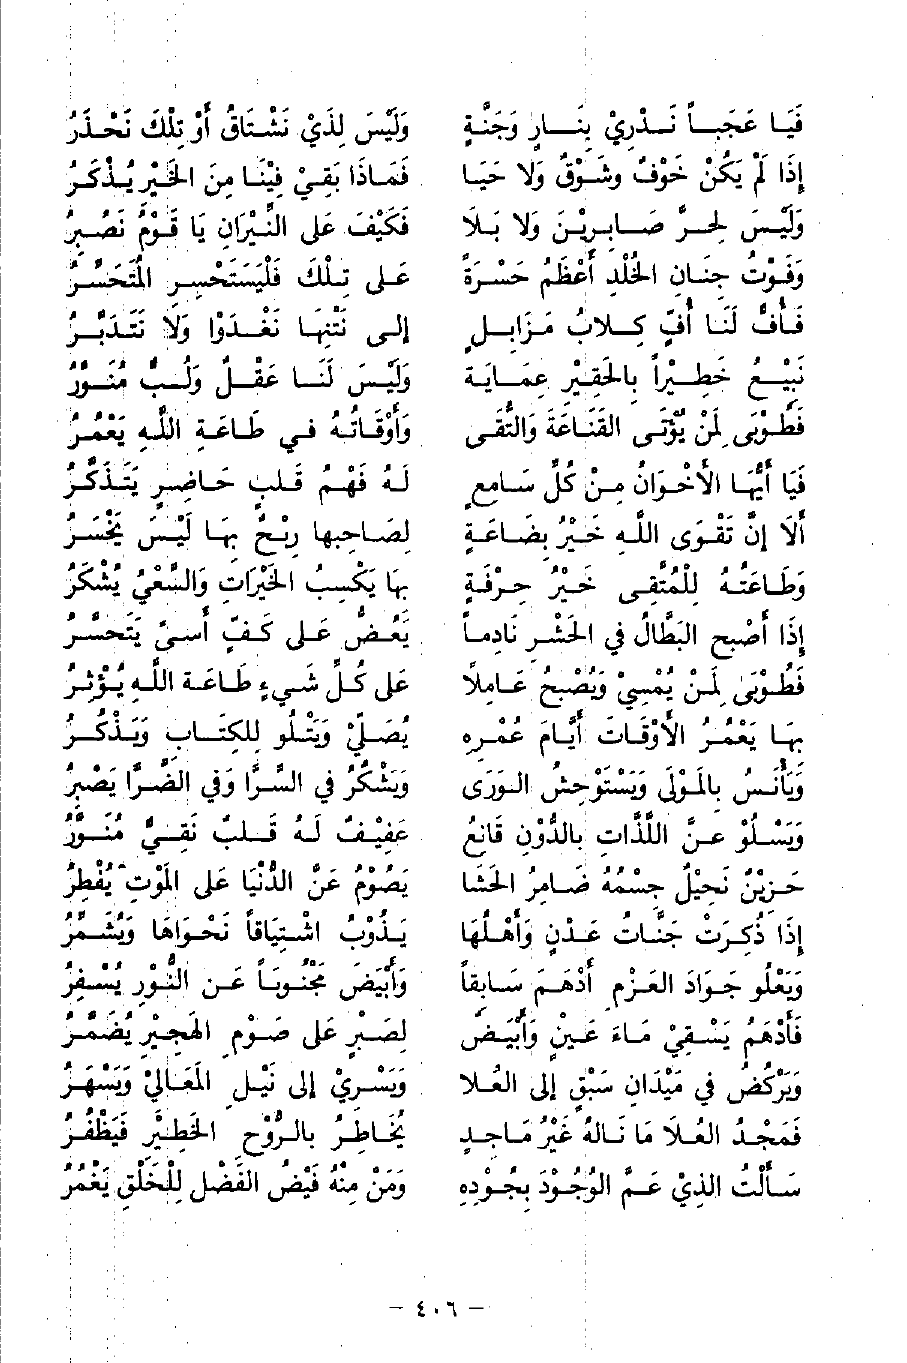 فَيَا عَجَباً نَدْرِيْ بِنَارٍ وَجَنَّةٍ وَلَيْسَ لِذَيْ نَشْتَاقُ أَوْ تِلْكَ نَحْذَرُ
إِذَا لَمْ يَكُنْ خَوْفٌ وَشَوْقٌ وَلَا حَيَا فَمَاذَا بَقِيْ فِيْنَا مِنَ الخَيْرِ يُذْكَرُ
وَلَيْسَ لِحَرٍّ صَابِرِيْنَ وَلَا بَلَا فَكَيْفَ عَلَى النِّيْرَانِ يَا قَوْمُ نَصْبِرُ
وَفَوْتُ جِنَانِ الخُلْدِ أَعْظَمُ حَسْرَةً عَلَى تِلْكَ فَلْيَسْتَحْسِرِ المُتَحَسِّرُ
فَأُفٍّ لَنَا أُفٍّ كِلَابُ مَزَابِلٍ إِلَى نَتْنِهَا نَغْدُوْا وَلَا نَتَدَبَّرُ
نَبِيْعُ خَطِيْراً بِالحَقِيْرِ عِمَايَةً وَلَيْسَ لَنَا عَقْلٌ وَلُبٌّ مُنَوَّرُ
فَطُوْبَى لِمَنْ يُؤْتَى القَنَاعَةَ وَالتُّقَى وَأَوْقَاتُهُ فِي طَاعَةِ اللهِ يَعْمُرُ
فَيَا أَيُّهَا الأَخْوَانُ مِنْ كُلِّ سَامِعٍ لَهُ فَهْمُ قَلْبٍ حَاضِرٍ يَتَذَكَّرُ
أَلَا إِنَّ تَقْوَى اللهِ خَيْرُ بِضَاعَةٍ لِصَاحِبِهَا رِبْحٌ بِهَا لَيْسَ يَخْسَرُ
وَطَاعَتُهُ لِلمُتَّقِي خَيْرُ حِرْفَةٍ بِهَا يَكْسِبُ الخَيْرَاتِ وَالسَّعْيُ يُشْكَرُ
إِذَا أَصْبَحَ البَطَّالُ فِي الحَشْرِ نَادِماً يَعَضُّ عَلَى كَفٍّ أَسَىً يَتَحَسَّرُ
فَطُوْبَى لِمَنْ يُمْسِيْ وَيُصْبِحُ عَامِلاً عَلَى كُلِّ شَيءٍ طَاعَةَ اللهِ يُؤْثِرُ
بِهَا يَعْمُرُ الأَوْقَاتَ أَيَّامَ عُمْرِهِ يُصَلِّيْ وَيَتْلُو لِلكِتَابِ وَيَذْكُرُ
وَيَأْنَسُ بِالمَوْلَى وَيَسْتَوْحِشُ الوَرَى وَيَشْكُرُ فِي السَّرَّا وَفِي الضَّرَّا يَصْبِرُ
وَيَسْلُوْ عَنِ اللَّذَّاتِ بِالدُّوْنِ قَانِعٌ عَفِيْفٌ لَهُ قَلْبٌ نَقِيٌّ مُنَوَّرُ
حَزِيْنٌ نَحِيْلٌ جِسْمُهُ ضَامِرُ الحَشَا يَصُوْمُ عَنِ الدُّنْيَا عَلَى المَوْتِ يُفْطِرُ
إِذَا ذُكِرَتْ جَنَّاتُ عَدْنٍ وَأَهْلُهَا يَذُوْبُ اشْتِيَاقاً نَحْوَاهَا وَيُشَمِّرُ
وَيَعْلُو جَوَادَ العَزْمِ أَدْهَمَ سَابِقاً وَأَبْيَضَ مَجْنُوباً عَنِ النُّوْرِ يُسْفِرُ
فَأَدْهَمُ يَسْقِيْ مَاءَ عَيْنٍ وَأَبْيَضُ لِصَبْرٍ عَلَى صَوْمِ الهَجِيْرِ يُضَمَّرُ
وَيَرْكُضُ فِي مَيْدَانِ سَبْقٍ إِلَى العُلَا وَيَسْرِيْ إِلَى نَيْلِ المَعَالِيْ وَيَسْهَرُ
فَمَجْدُ العُلَا مَا نَالَهُ غَيْرُ مَاجِدٍ يُخَاطِرُ بِالرُّوْحِ الخَطِيْرِ فَيَظْفَرُ
سَأَلْتُ الذِيْ عَمَّ الوُجُوْدَ بِجُوْدِهِ وَمَنْ مِنْهُ فَيْضُ الفَضْلِ لِلْخَلْقِ يَغْمُرُ
- ٤٠٦ -